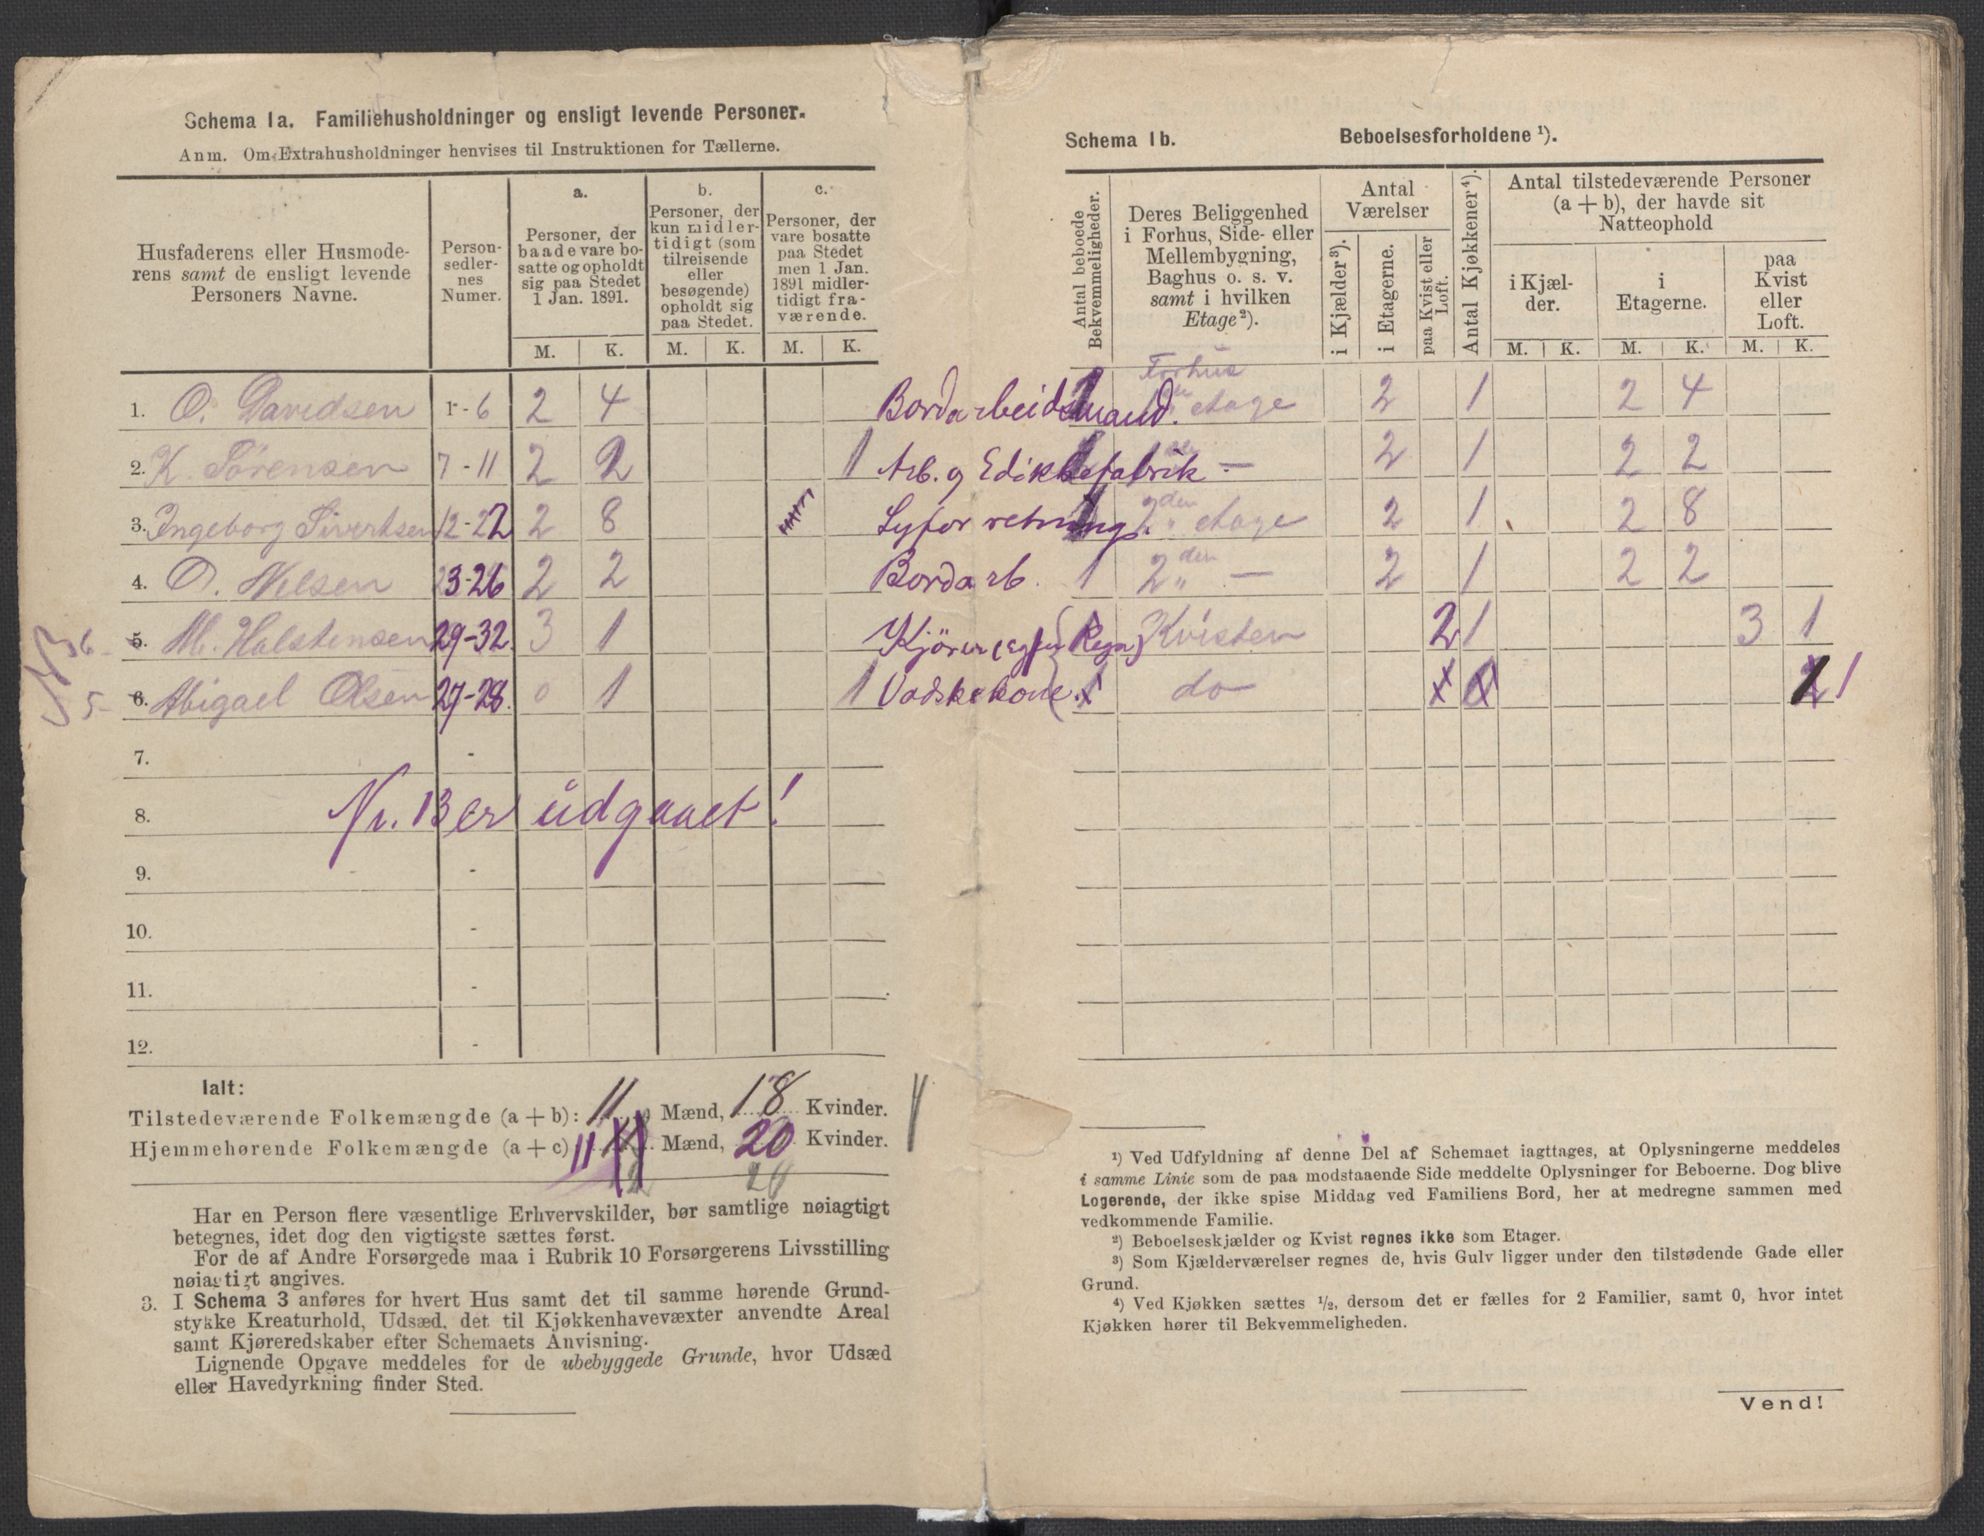 Schema 1a. Familiehusholdninger og ensligt levende Personer.
Anm. Om Extrahusholdninger henvises til Instruktionen for Tællerne.
Husfaderens eller Husmode-
rens samt de ensligt levende
Personers Navne.
Person-
sedler-
nes
Numer.
a.
Personer, der
baade vare bo-
satte og opholdt
sig paa Stedet
1 Jan. 1891.
b.
Personer, der
kun midler-
tidigt (som
tilreisende
eller
besøgende)
opholdt sig
paa Stedet.
c.
Personer, der
vare bosatte
paa Stedet
men 1 Jan.
1891 midler-
tidigt fra-
værende.
M. K. M. K. M. K.
1. O. Davidsen 1-6 2 4 Bordarbeidsmand.
2. K. Sörensen 7-11 2 2 1 Arb. g Edikkefabrik
3. Ingeborg Sivertsen 12-22 2 8 Syforretning.
4. O. Nilsen 23-26 2 2 Bordarb.
6 5. M. Halstensen 29-32. 3 1
5 6. Abigael Olsen 27-28. 0 1 1 Vadskekone
7. -
8. Nr. 13 er udgaaet!
9. -
10. -
11. -
12. -
Ialt:
Tilstedeværende Folkemængde (a + b): 11 Mænd, 18 Kvinder.
Hjemmehørende Folkemængde (a + c) 11 Mænd, 20 Kvinder.
20
Har en Person flere væsentlige Erhvervskilder, bør samtlige nøiagtigt
betegnes, idet dog den vigtigste sættes først.
For de af Andre Forsørgede maa i Rubrik 10 Forsørgerens Livsstilling
nøiagtigt angives.
3. I Schema 3 anføres for hvert Hus samt det til samme hørende Grund-
stykke Kreaturhold, Udsæd, det til Kjøkkenhavevæxter anvendte Areal
samt Kjøreredskaber efter Schemaets Anvisning.
Lignende Opgave meddeles for de ubebyggede Grunde, hvor Udsæd
eller Havedyrkning finder Sted.
Schema 1b. Beboelsesforholdene ¹).
Antal beboede
Bekvemmeligheder.
Deres Beliggenhed
i Forhus, Side- eller
Mellembygning,
Baghus o. s. v.
samt i hvilken
Etage²).
Antal
Værelser
i Kjælder³).
i Etagerne.
paa Kvist eller
Loft.
Antal Kjøkkener⁴).
Antal tilstedeværende Personer
(a + b), der havde sit
Natteophold
i Kjæl-
der.
i
Etagerne.
paa
Kvist
eller
Loft.
M. K. M. K. M. K.
Forhus
etage 2 1 2 4
1 — 2 1 2 2
1 2den etage 2 1 2 8
1 2den — 2 1 2 2
Kvisten 2 1 3 1
do 1
¹) Ved Udfyldning af denne Del af Schemaet iagttages, at Oplysningerne meddeles
i samme Linie som de paa modstaaende Side meddelte Oplysninger for Beboerne. Dog blive
Logerende, der ikke spise Middag ved Familiens Bord, her at medregne sammen med
vedkommende Familie.
²) Beboelseskjælder og Kvist regnes ikke som Etager.
³) Som Kjælderværelser regnes de, hvis Gulv ligger under den tilstødende Gade eller
Grund.
⁴) Ved Kjøkken sættes ¹/₂, dersom det er fælles for 2 Familier, samt 0, hvor intet
Kjøkken hører til Bekvemmeligheden.
Vend!